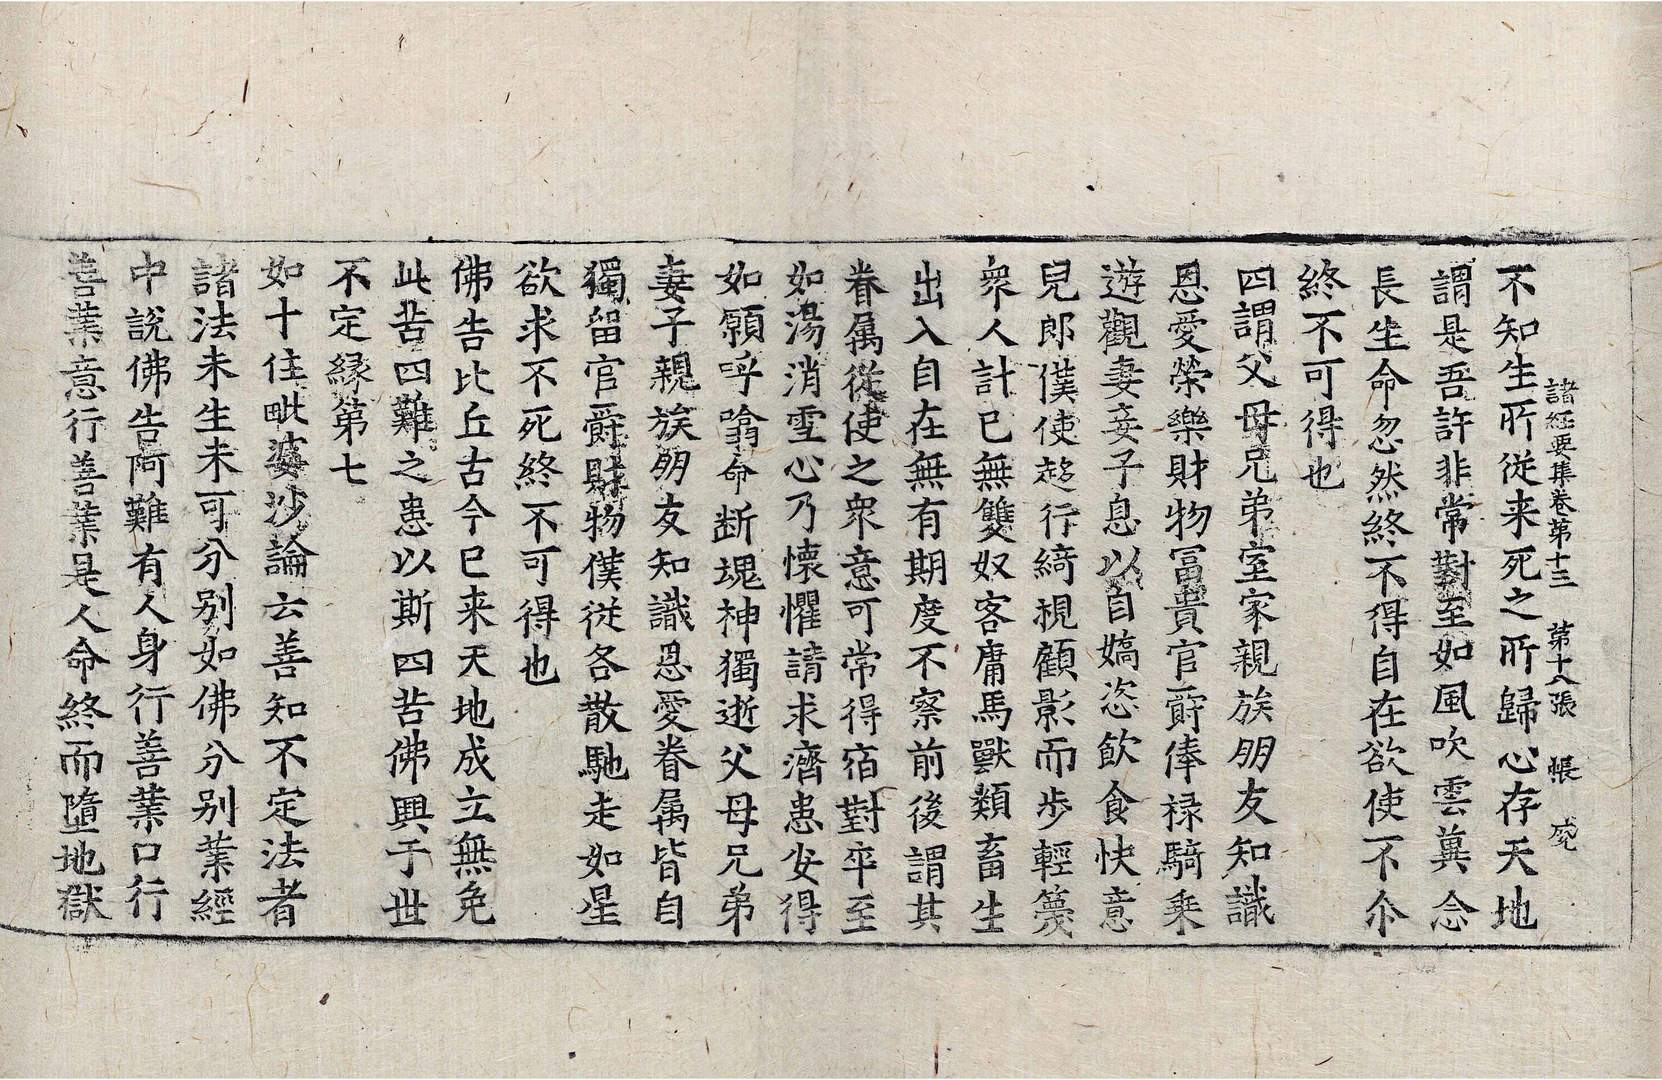 諸經要集卷第十三 第十八張 帳
不知生所從来死之所歸心存天地
謂是吾許非常對至如風吹雲兾念
長生命忽然終不得自在欲使不尒
終不可得也
四謂父母兄弟室家親族朋友知識
恩愛榮樂財物冨貴官爵俸禄騎乗
遊觀妻妾子息以自嬌恣飲食快意
兒郎僕使趍行綺視顧影而歩輕篾
衆人計已無雙奴客庸馬獸類畜生
出入自在無有期度不察前後謂其
眷属從使之衆意可常得宿對卒至
如湯消雪心乃懷懼請求濟患安得
如願呼噏命断塊神獨逝父母兄弟
妻子親族朋友知識恩愛眷属皆自
獨留官爵財物僕從各散馳走如星
欲求不死終不可得也
佛告比丘古今已来天地成立無免
此苦四難之患以斯四苦佛興于世
不定縁第七
如十住毗婆沙論云善知不定法者
諸法未生未可分别如佛分别業經
中說佛告阿難有人身行善業口行
善業意行善業是人命終而墮地獄